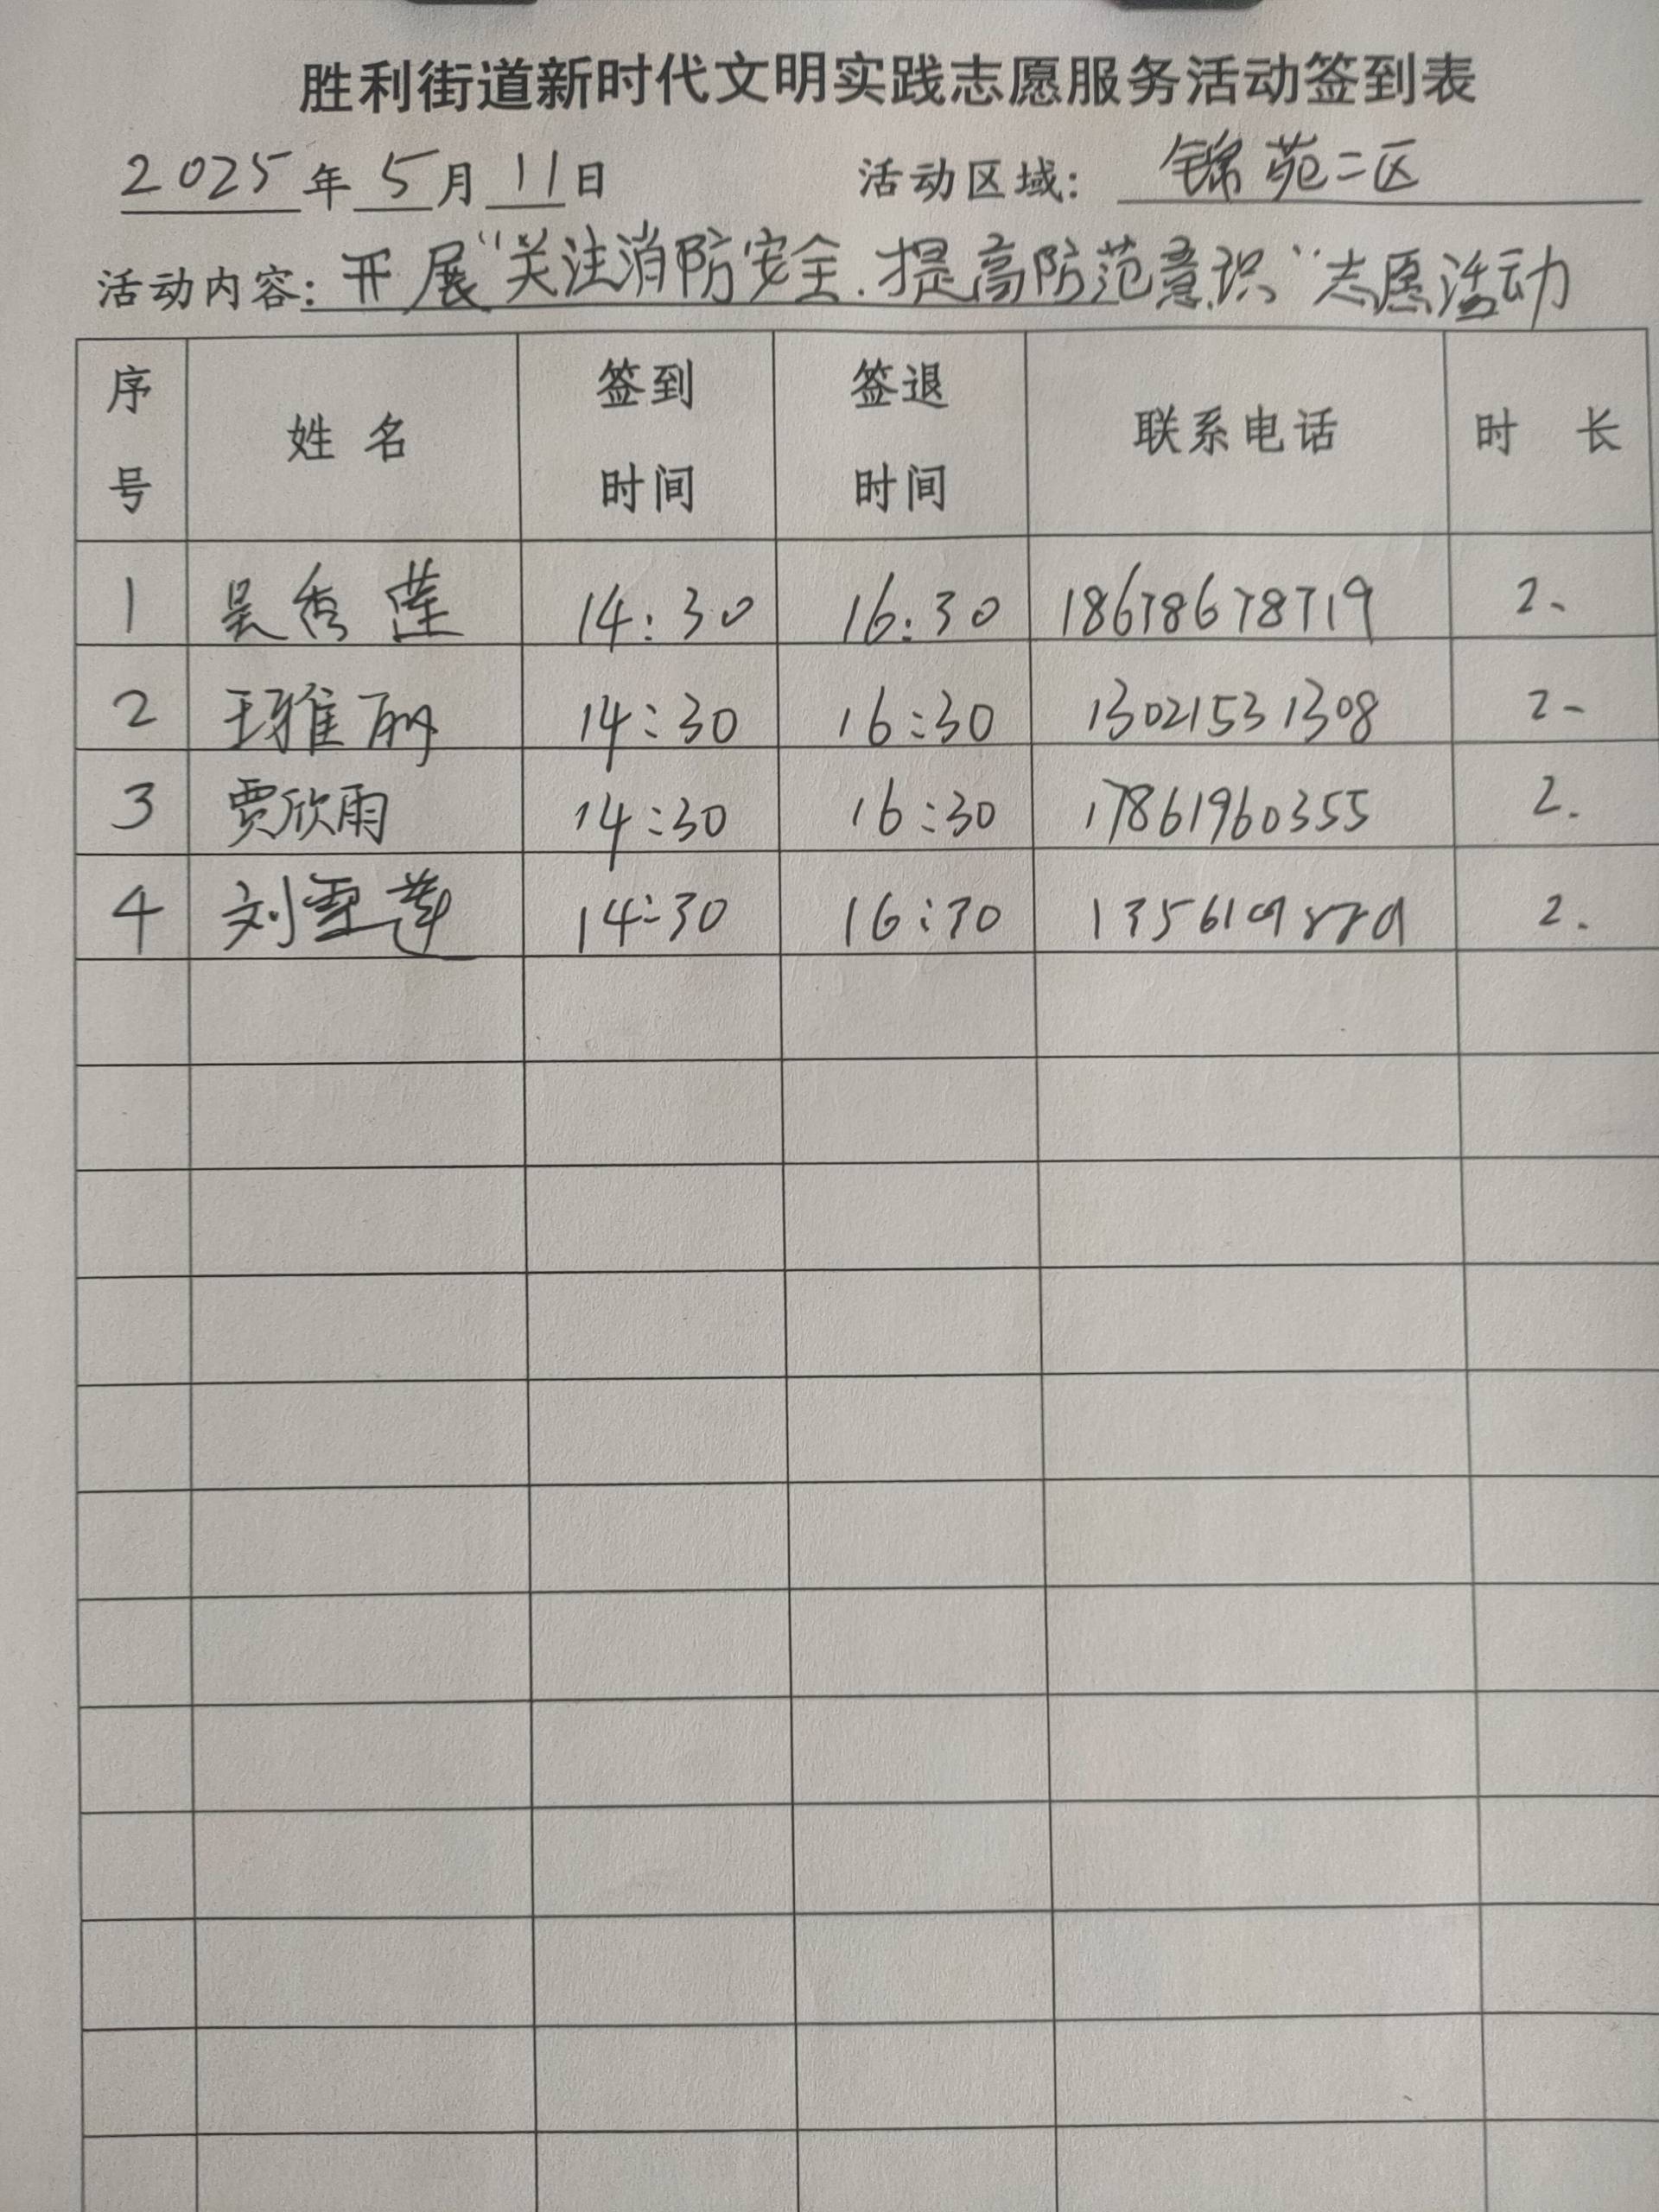 胜利街道新时代文明实践志愿服务活动签到表
2025年5月11日 活动区域：锦苑二区
活动内容：开展“关注消防安全.提高防范意识”志愿活动
序号 姓名 签到时间 签退时间 联系电话 时长
1 吴秀莲 14:30 16:30 18678678719 2、
2 王雅丽 14:30 16:30 13021531308 2-
3 贾欣雨 14:30 16:30 17861960355 2.
4 刘雪莲 14:30 16:30 2.